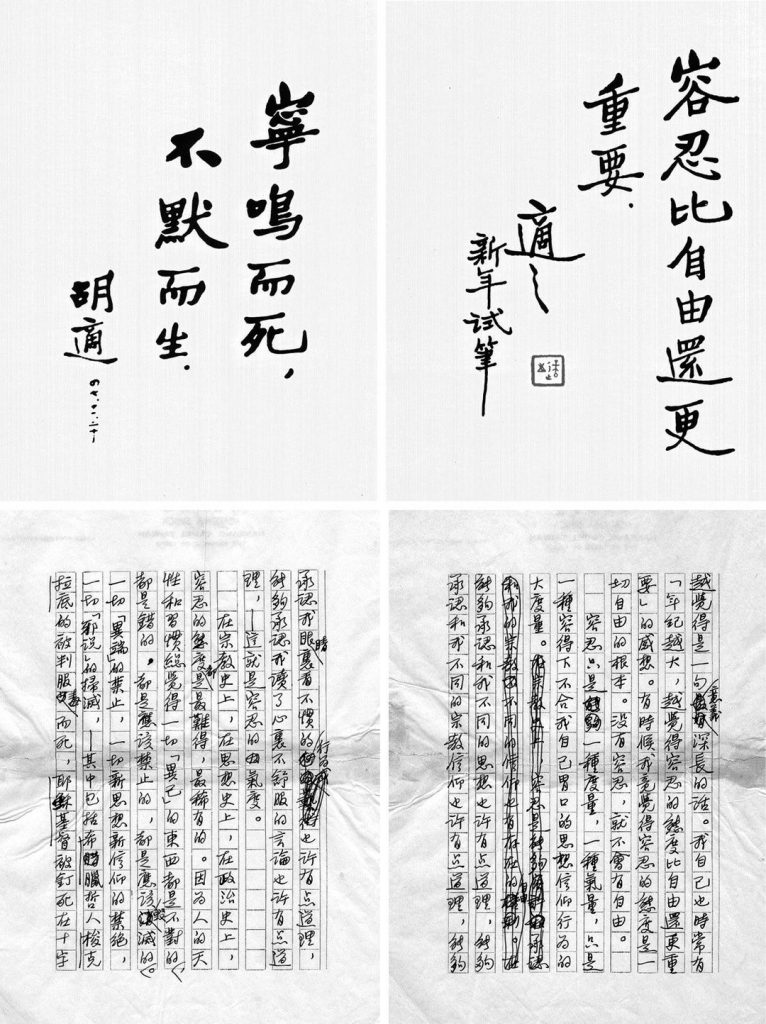 容忍比自由還更
重要.
適之
新年试筆
寧鳴而死,
不默而生.
胡適
越覺得是一句意義深長的話。我自己也時常有
「年紀越大,越覺得容忍的態度比自由還更重
要」的感想。有時候我竟覺得容忍的態度是一
切自由的根本。没有容忍,就不會有自由。
容忍只是一種度量,一種氣量,只是
一種容得下不合我自己胃口的思想信仰行为的
大度量。容忍是能夠承認
能夠承認和我不同的思想也許有点道理,能夠
承認和我不同的宗教信仰也許有点道理,能夠
承認我眼睛裏看不慣的行为也許有点道理,
能夠承認我讀了心裏不舒服的言論也許有点道
理,——這就是容忍的氣度。
在宗教史上,在思想史上,在政治史上,
容忍的態度是最難得,最稀有的。因为人的天
性和習慣總覺得一切「異己」的東西都是不對的,
都是錯的。都是應該禁止的,都是應該毀滅的。
一切「異端」的禁止,一切新思想新信仰的禁絕,
一切「邪說」的掃滅,——其中包括希臘哲人梭克
拉底的被判服毒而死,耶穌基督被釘死在十字